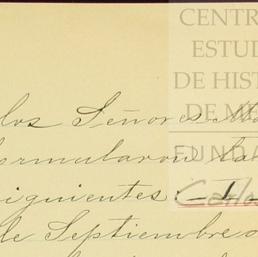 CENTR
ESTUD
DE HIST
DE M
FUNDA
los Señores
formularon la
siguientes:
de Septiembre